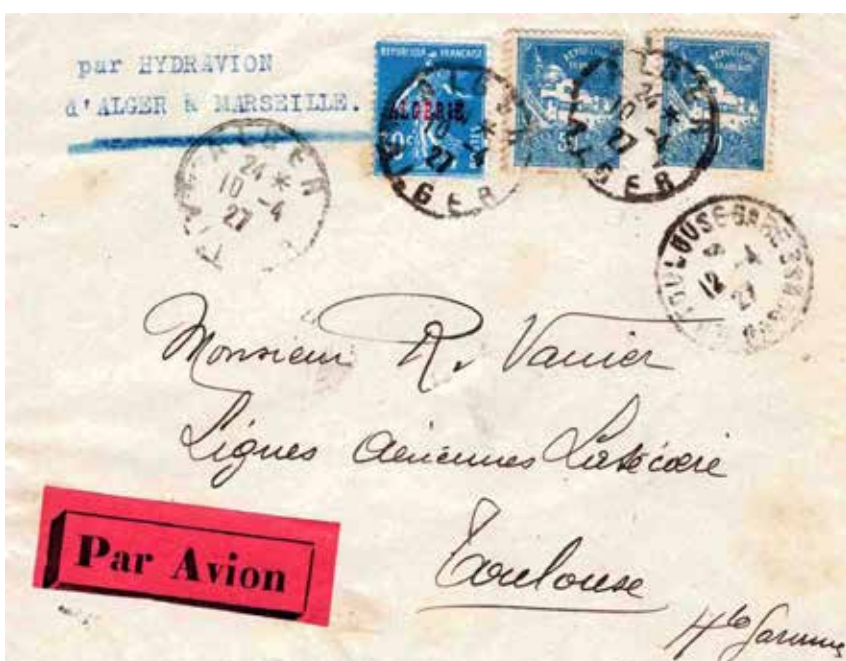 par HYDRAVION
d'ALGER à MARSEILLE.
REPUBLIQUE FRANÇAISE
ALGERIE
POSTES
REPUBLIQUE
FRANÇAISE
REPUBLIQUE
FRANÇAISE
ALGER
24 *
10 -4
27
ALGER
10 *
27 -4
ALGER
ALGER
24 *
10 -4
27
ALGER
TOULOUSE-GARE
12 -4
27
Monsieur R. Vanier
Lignes Aériennes Latécoère
Toulouse
Hte Garonne
Par Avion